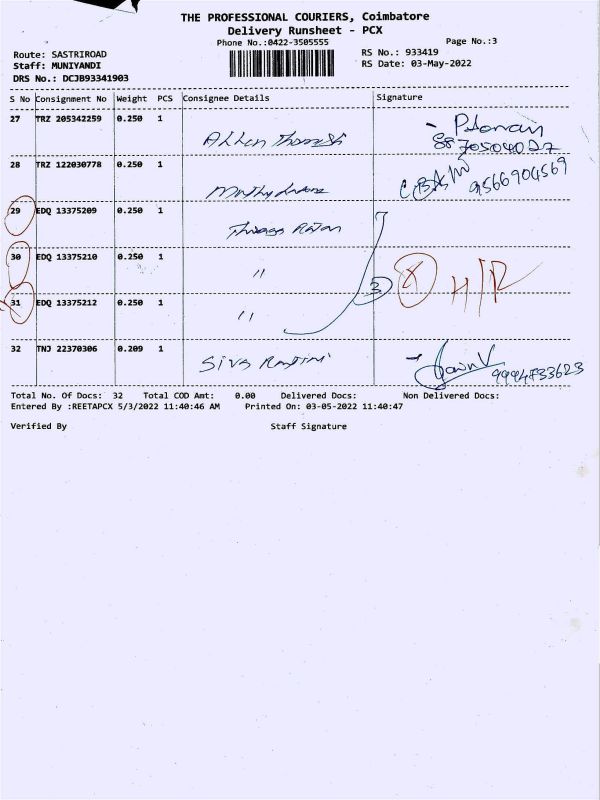 THE PROFESSIONAL COURIERS, Coimbatore
Delivery Runsheet - PCX
Phone No.:0422-3505555
Page No.:3
Route: SASTRIROAD
RS No.: 933419
Staff: MUNIYANDI
RS Date: 03-May-2022
DRS No.: DCJB93341903
S No Consignment No Weight PCS Consignee Details Signature
27 TRZ 205342259 0.250 1
Allen Thomesh
8870504027
28 TRZ 122030778 0.250 1
CBSM 9566904569
29 EDQ 13375209 0.250 1
Thiaga Rajan
30 EDQ 13375210 0.250 1
"
3
H/R
31 EDQ 13375212 0.250 1
"
32 TNJ 22370306 0.209 1
Siva Ranjini
9994733623
Total No. Of Docs: 32 Total COD Amt: 0.00 Delivered Docs: Non Delivered Docs:
Entered By :REETAPCX 5/3/2022 11:40:46 AM Printed On: 03-05-2022 11:40:47
Verified By Staff Signature